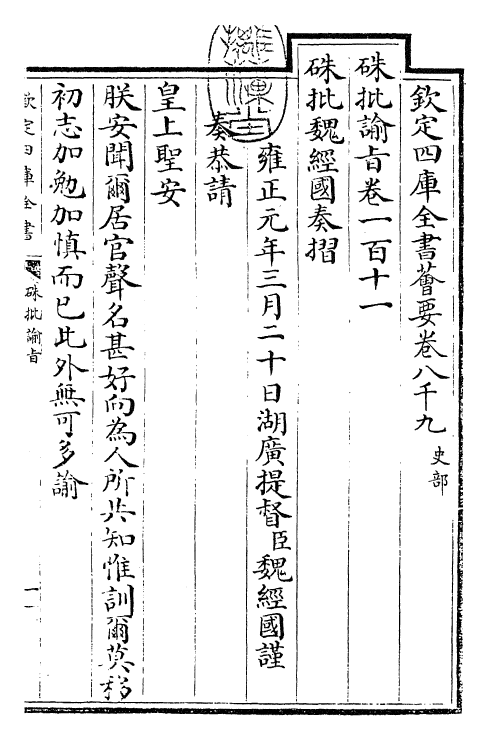 欽定四庫全書薈要卷八千九 史部
硃批諭旨卷一百十一
硃批魏經國奏摺
雍正元年三月二十日湖廣提督臣魏經國謹
奏恭請
皇上聖安
朕安聞爾居官聲名甚好向為人所共知惟訓爾莫移
初志加勉加慎而已此外無可多諭
欽定四庫全書
硃批諭旨